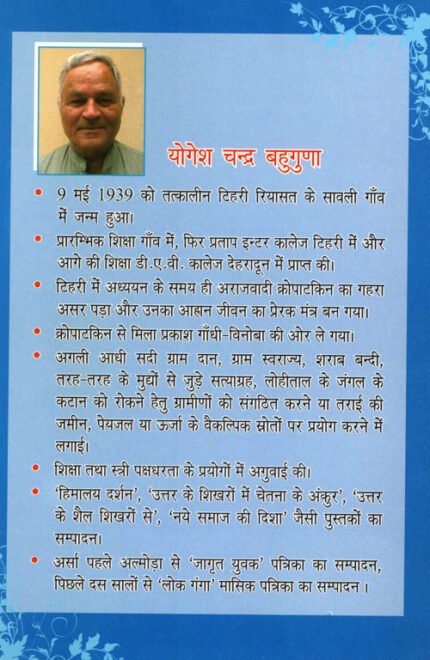 योगेश चन्द्र बहुगुणा
• 9 मई 1939 को तत्कालीन टिहरी रियासत के सावली गाँव
में जन्म हुआ।
• प्रारम्भिक शिक्षा गाँव में, फिर प्रताप इन्टर कालेज टिहरी में और
आगे की शिक्षा डी.ए.वी. कालेज देहरादून में प्राप्त की।
• टिहरी में अध्ययन के समय ही अराजवादी क्रोपाटकिन का गहरा
असर पड़ा और उनका आह्वान जीवन का प्रेरक मंत्र बन गया।
• क्रोपाटकिन से मिला प्रकाश गाँधी-विनोबा की ओर ले गया।
• अगली आधी सदी ग्राम दान, ग्राम स्वराज्य, शराब बन्दी,
तरह-तरह के मुद्दों से जुड़े सत्याग्रह, लोहीताल के जंगल के
कटान को रोकने हेतु ग्रामीणों को संगठित करने या तराई की
जमीन, पेयजल या ऊर्जा के वैकल्पिक स्रोतों पर प्रयोग करने में
लगाई।
• शिक्षा तथा स्त्री पक्षधरता के प्रयोगों में अगुवाई की।
• ‘हिमालय दर्शन’, ‘उत्तर के शिखरों में चेतना के अंकुर’, ‘उत्तर
के शैल शिखरों से’, ‘नये समाज की दिशा’ जैसी पुस्तकों का
सम्पादन।
• अर्सा पहले अल्मोड़ा से ‘जागृत युवक’ पत्रिका का सम्पादन,
पिछले दस सालों से ‘लोक गंगा’ मासिक पत्रिका का सम्पादन।